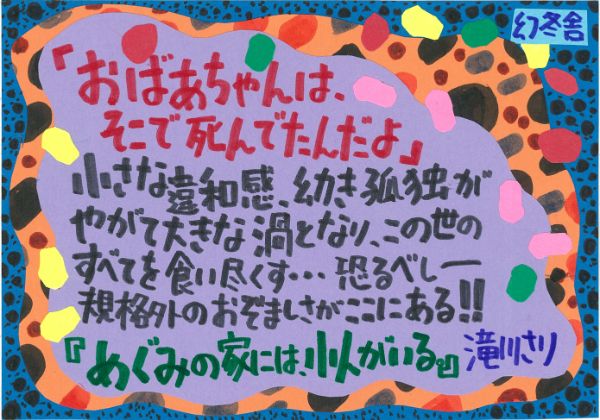 幻冬舎
「おばあちゃんは、
そこで死んでたんだよ」
小さな違和感、幼き孤独が
やがて大きな渦となり、この世の
すべてを食い尽くす…恐るべしー
規格外のおぞましさがここにある!!
『めぐみの家には、小人がいる。』滝川さり